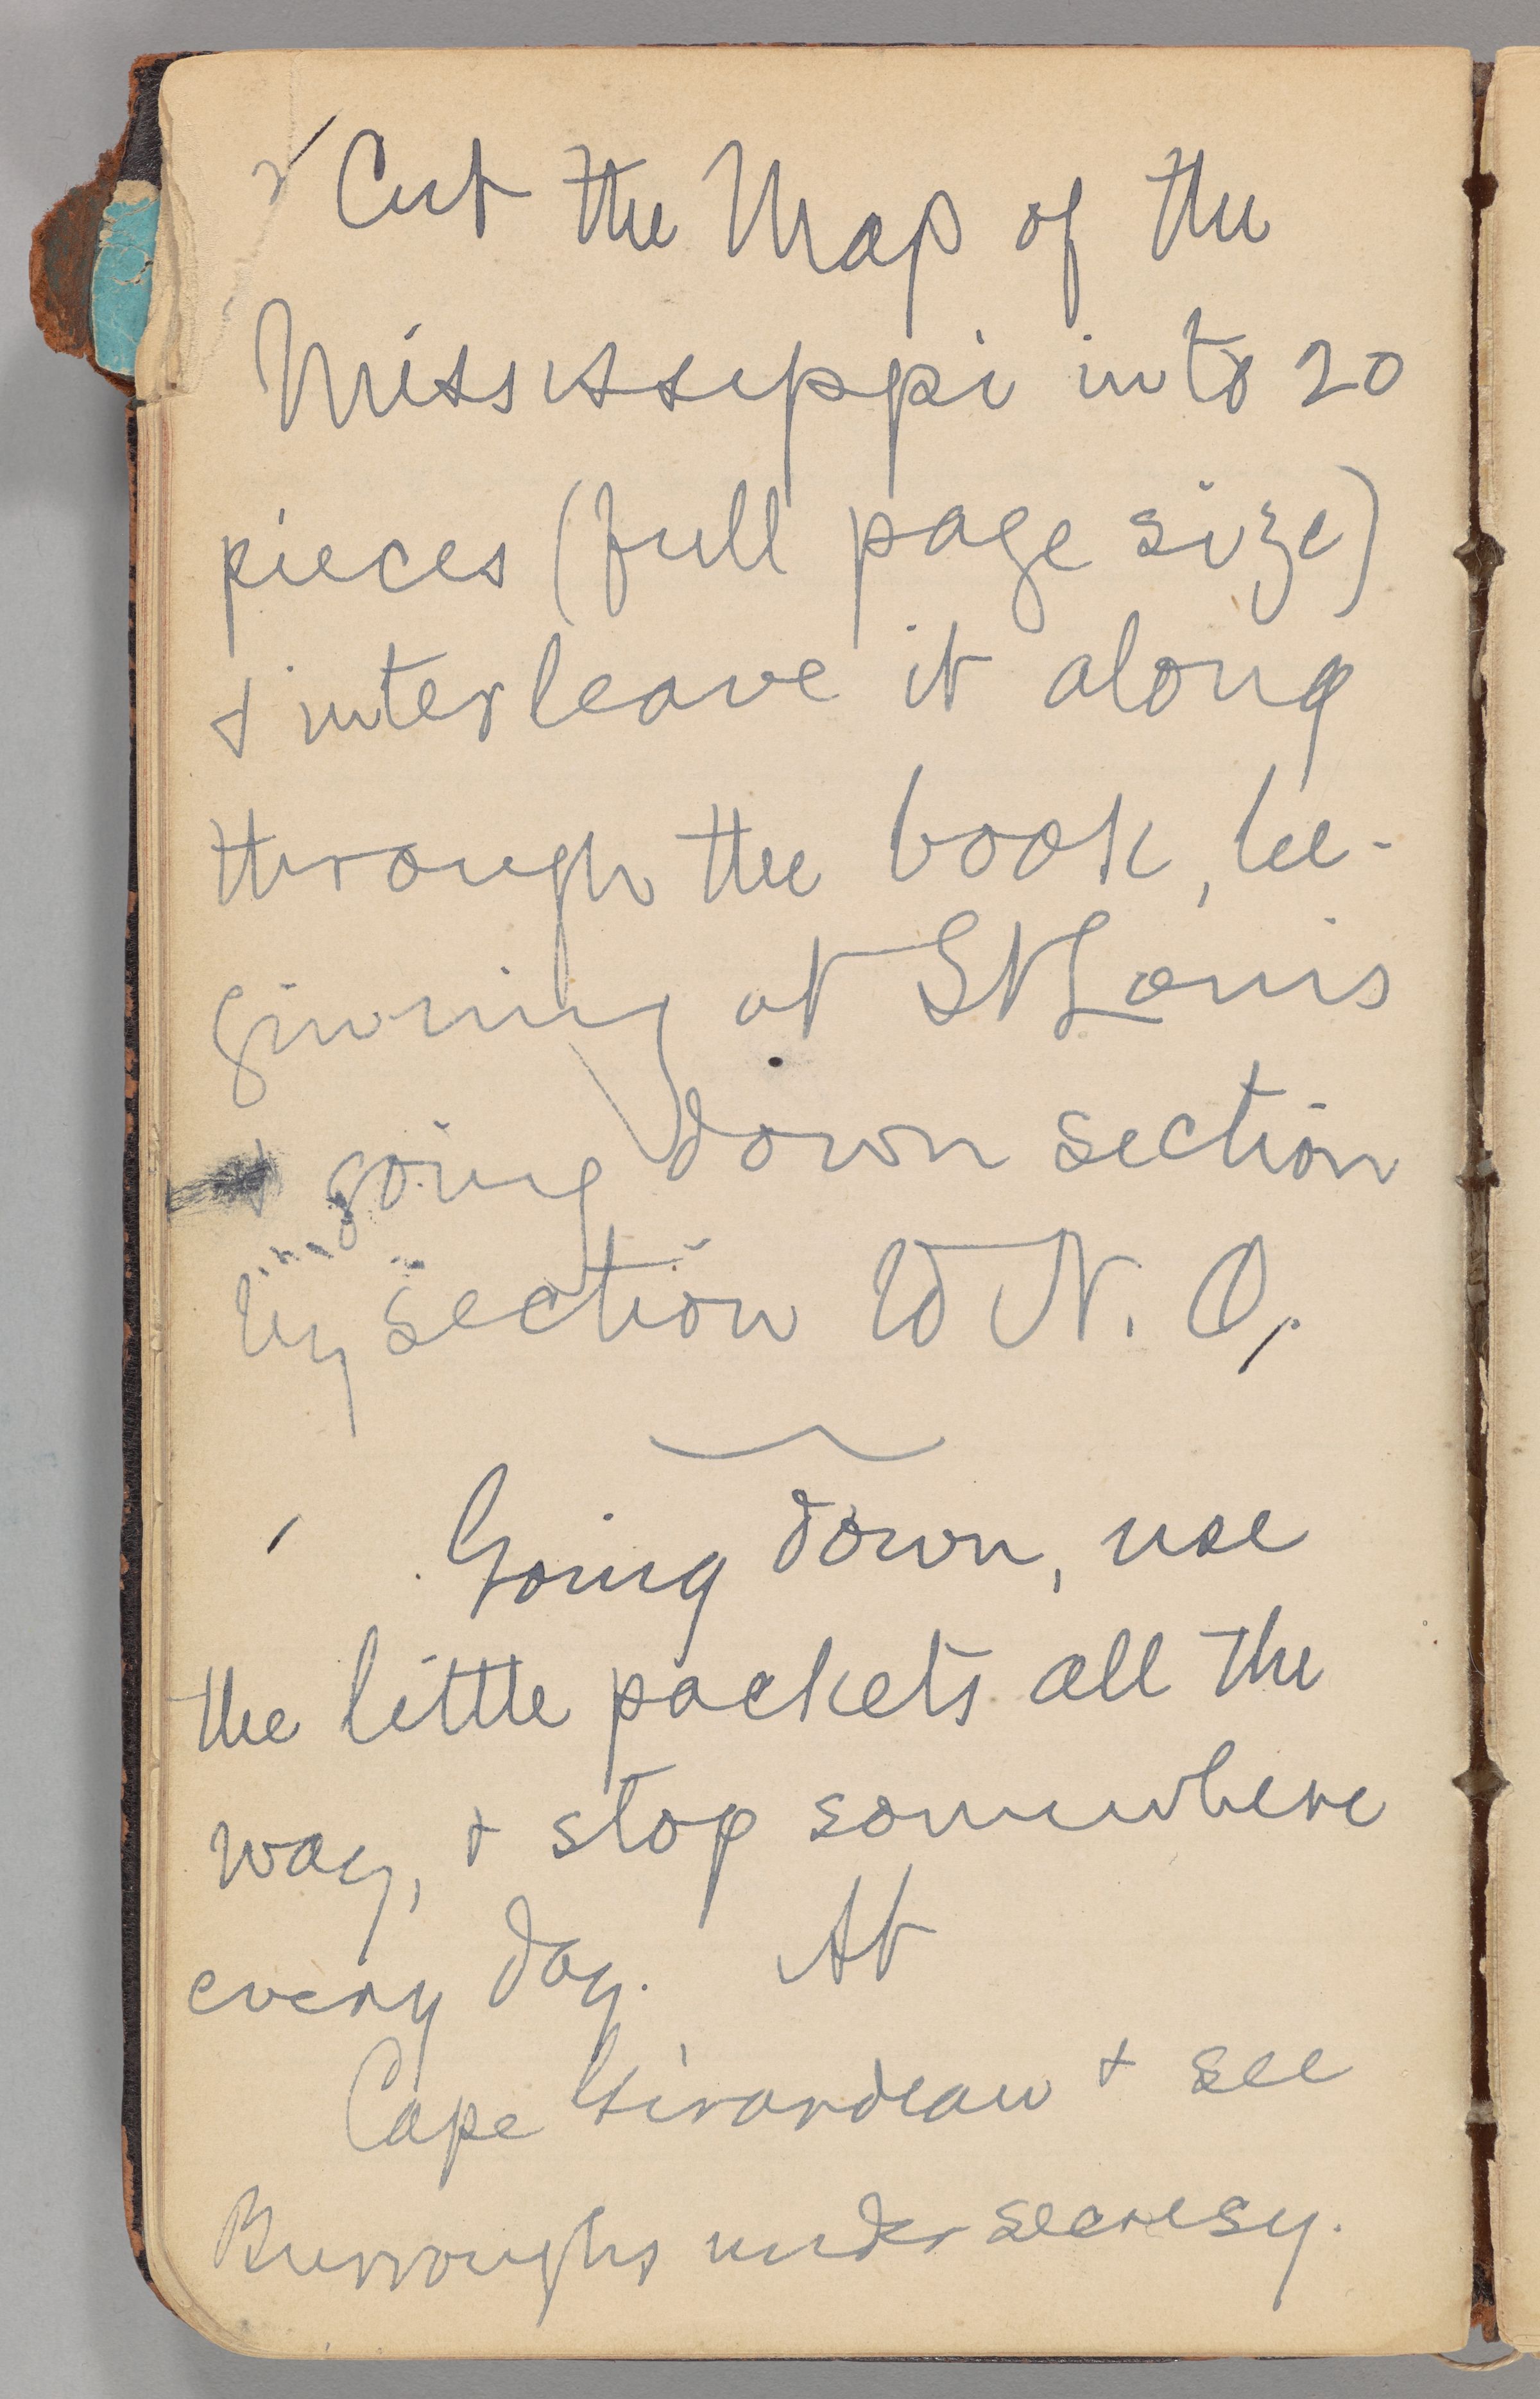 Cut the Map of the
Mississippi into 20
pieces (full page size)
& interleave it along
through the book, be-
ginning at St Louis
& going down section
by section to N. O.
Going down, use
the little packets all the
way, & stop somewhere
every day. At
Cape Girardeau & see
Burroughs under secresy.